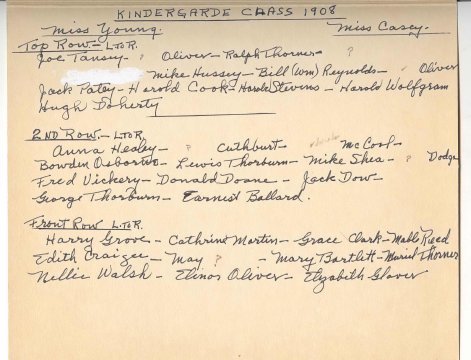 KINDERGARDE CLASS 1908
Miss Young. Miss Casey.
Top Row. - L to R.
Joe Tansey - ? Oliver - Ralph Thorner - ?
Mike Hussey - Bill (Wm) Reynolds - Oliver
Jack Patey - Harold Cook - Harold Stevens - Harold Wolfgram
Hugh Doherty
2ND Row. - L to R.
Anna Healey - ? Cuthburt - McCool -
Bowden Osborne - Lewis Thorburn - Mike Shea - ? Dodge
Fred Vickery - Donald Doane - Jack Dow -
George Thorburn - Earnest Ballard.
Front Row L to R.
Harry Grove - Cathrine Martin - Grace Clark - Mable Reed
Edith Craizee - May ? - Mary Bartlett - Muriel Thorner
Nellie Walsh - Elinor Oliver - Elizabith Glover